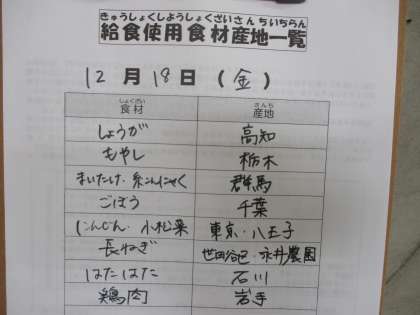 きゅうしょくしようしょくざいさんちいちらん
給食使用食材産地一覧
12月18日（金）
しょくざい さんち
食材 産地
しょうが 高知
もやし 栃木
まいたけ・糸こんにゃく 群馬
ごぼう 千葉
にんじん・小松菜 東京・八王子
長ねぎ 世田谷区・永井農園
はたはた 石川
鶏肉 岩手